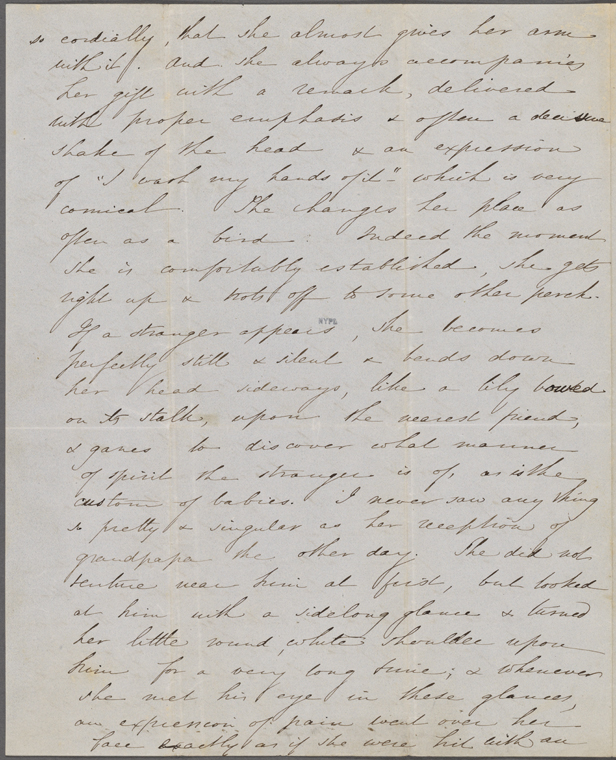 so cordially, that she almost gives her arm
with it. And she always accompanies
her gift with a remark, delivered
with proper emphasis & often a decisive
shake of the head & an expression
of "I wash my hands of it-" which is very
comical. She changes her place as
often as a bird. Indeed the moment
she is comfortably established, she gets
right up & trots off to some other perch.
If a stranger appears, she becomes
NYPL
perfectly still & silent & bends down
her head sideways, like a lily bowed
on its stalk, upon the nearest friend,
& gazes to discover what manner
of spirit the stranger is of, as is the
custom of babies. I never saw any thing
so pretty & singular as her reception of
grandpapa the other day. She did not
venture near him at first, but looked
at him with a sidelong glance & turned
her little round, white shoulder upon
him for a very long time; & whenever
she met his eye in these glances,
an expression of pain went over her
face exactly as if she were hit with an